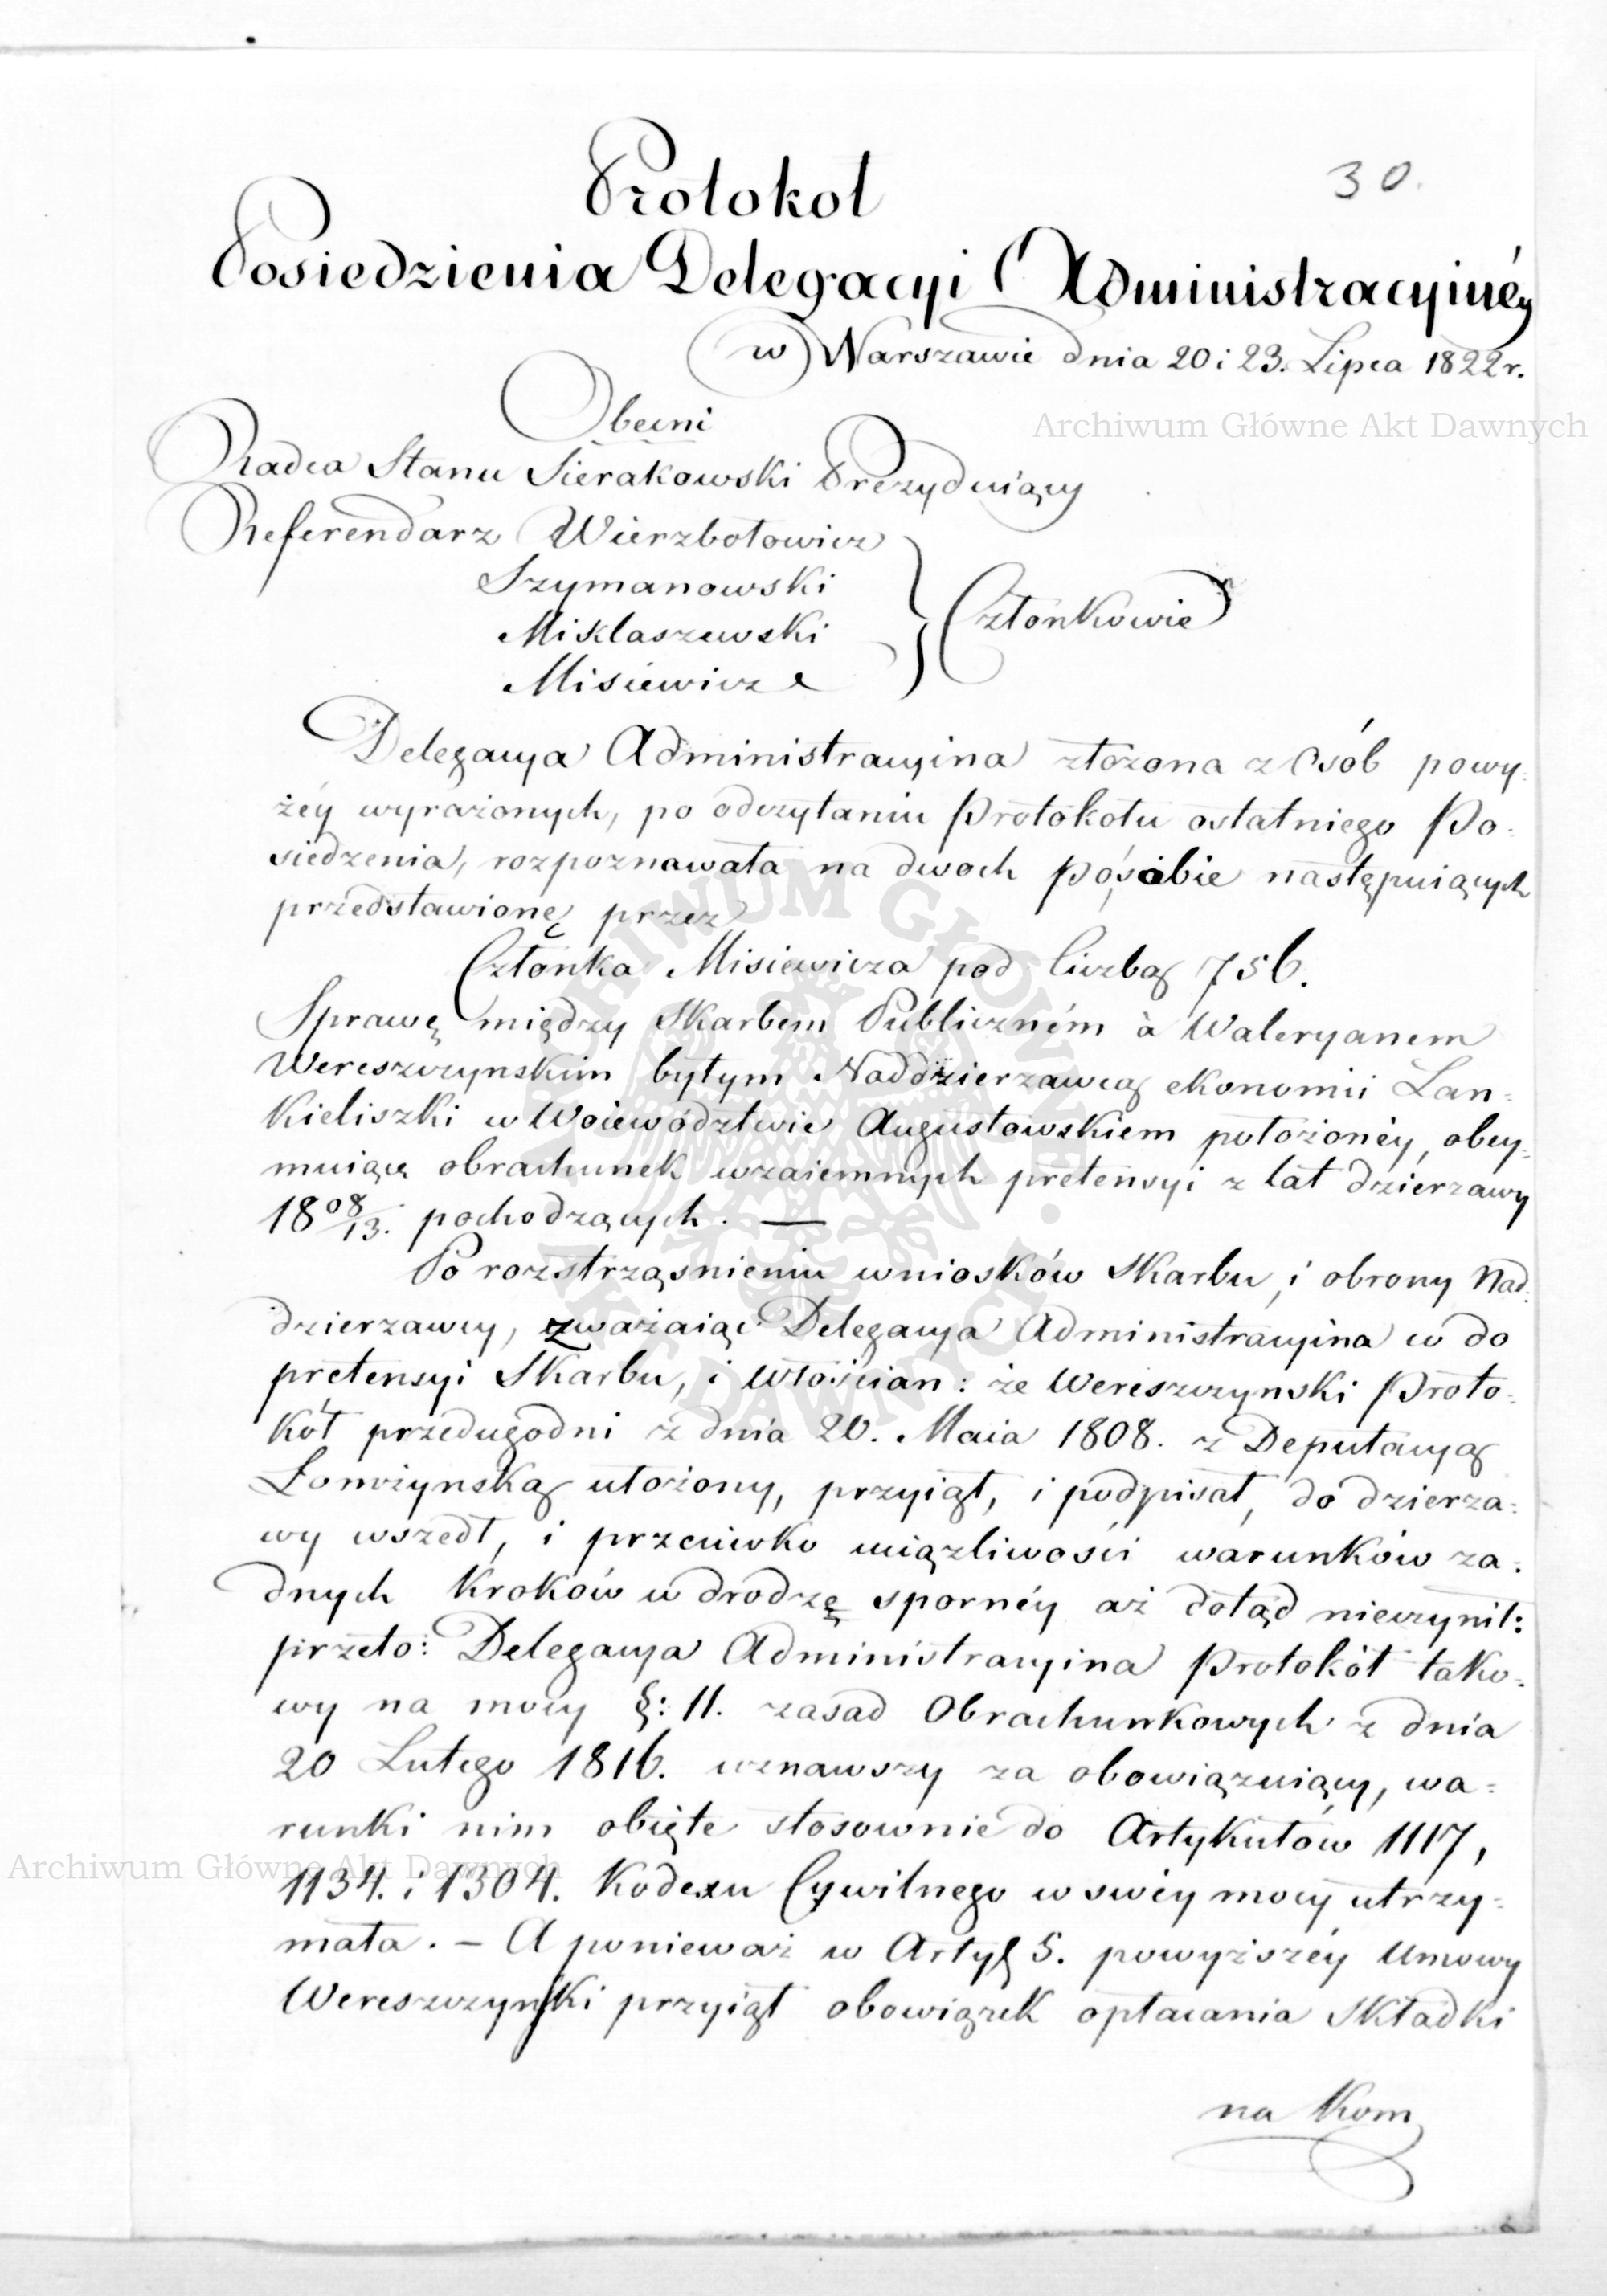 30.
Protokoł
Posiedzienia Delegacyi Administracyinéy
w Warszawie dnia 20 i 23. Lipca 1822 r.
Obecni
Radca Stanu Sierakowski Prezyduiący
Referendarz Wierzbołowicz
Szymanowski
Miklaszewski
Misiéwicz
Członkowie
Delegacya Administracyina złożona z Osób powy-
żéy wyrażonych, po odczytaniu Protokołu ostatniego Po-
siedzenia, rozpoznawała na dwoch pósobie następuiących
przedstawionę przez
Członka Misiewicza pod liczbą 756.
Sprawę między Skarbem Publiczném à Waleryanem
Wereszczynskim byłym Naddzierzawcą ekonomii Lan-
kieliszki w Woiewództwie Augustowskiem położonéy, obey-
muiącą obrachunek wzaiemnych pretensyi z lat dzierzawy
18 08/13. pochodzących. —
Po rozstrząsnieniu wniosków Skarbu, i obrony Nad-
dzierzawcy, zważaiąc Delegacya Administracyina co do
pretensyi Skarbu, i Włościan: że Wereszczynski Proto-
kół przedugodni z dnia 20. Maia 1808. z Deputacyą
Łomżynską ułożony, przyiął, i podpisał, do dzierza-
wy wszedł, i przeciwko uciążliwości warunków ża-
dnych kroków w drodzę spornéy aż dotąd nieczynił:
przeto: Delegacya Administracyina Protokół tako-
wy na mocy §: 11. zasad Obrachunkowych z dnia
20 Lutego 1816. uznawszy za obowiązuiący, wa-
runki nim obięte stosownie do Artykułów 1117,
1134. i 1304. Kodexu Cywilnego w swéy mocy utrzy-
mała. – A ponieważ w Arty 5. powyższéy Umowy
Wereszczynski przyiął obowiązek opłacania Składki
na Kom
Archiwum Główne Akt Dawnych
Archiwum Główne Akt Dawnych
ARCHIWUM GŁÓWNE AKT DAWNYCH